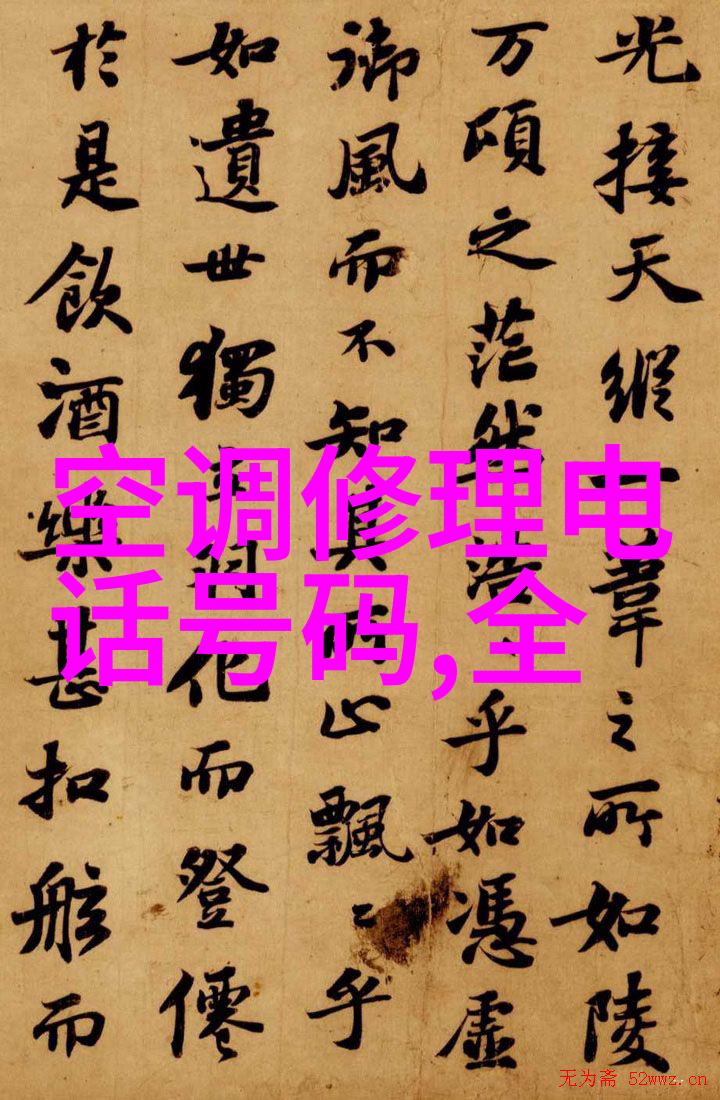 光接天縱一葦之所如陵
万頃之茫然浩〻乎如憑虛
御風而不知其所止飄〻乎
如遺世獨立羽化而登僊
於是飲酒樂甚扣舷而
空调修理电
话号码,全
无为斋 52wwz.cn